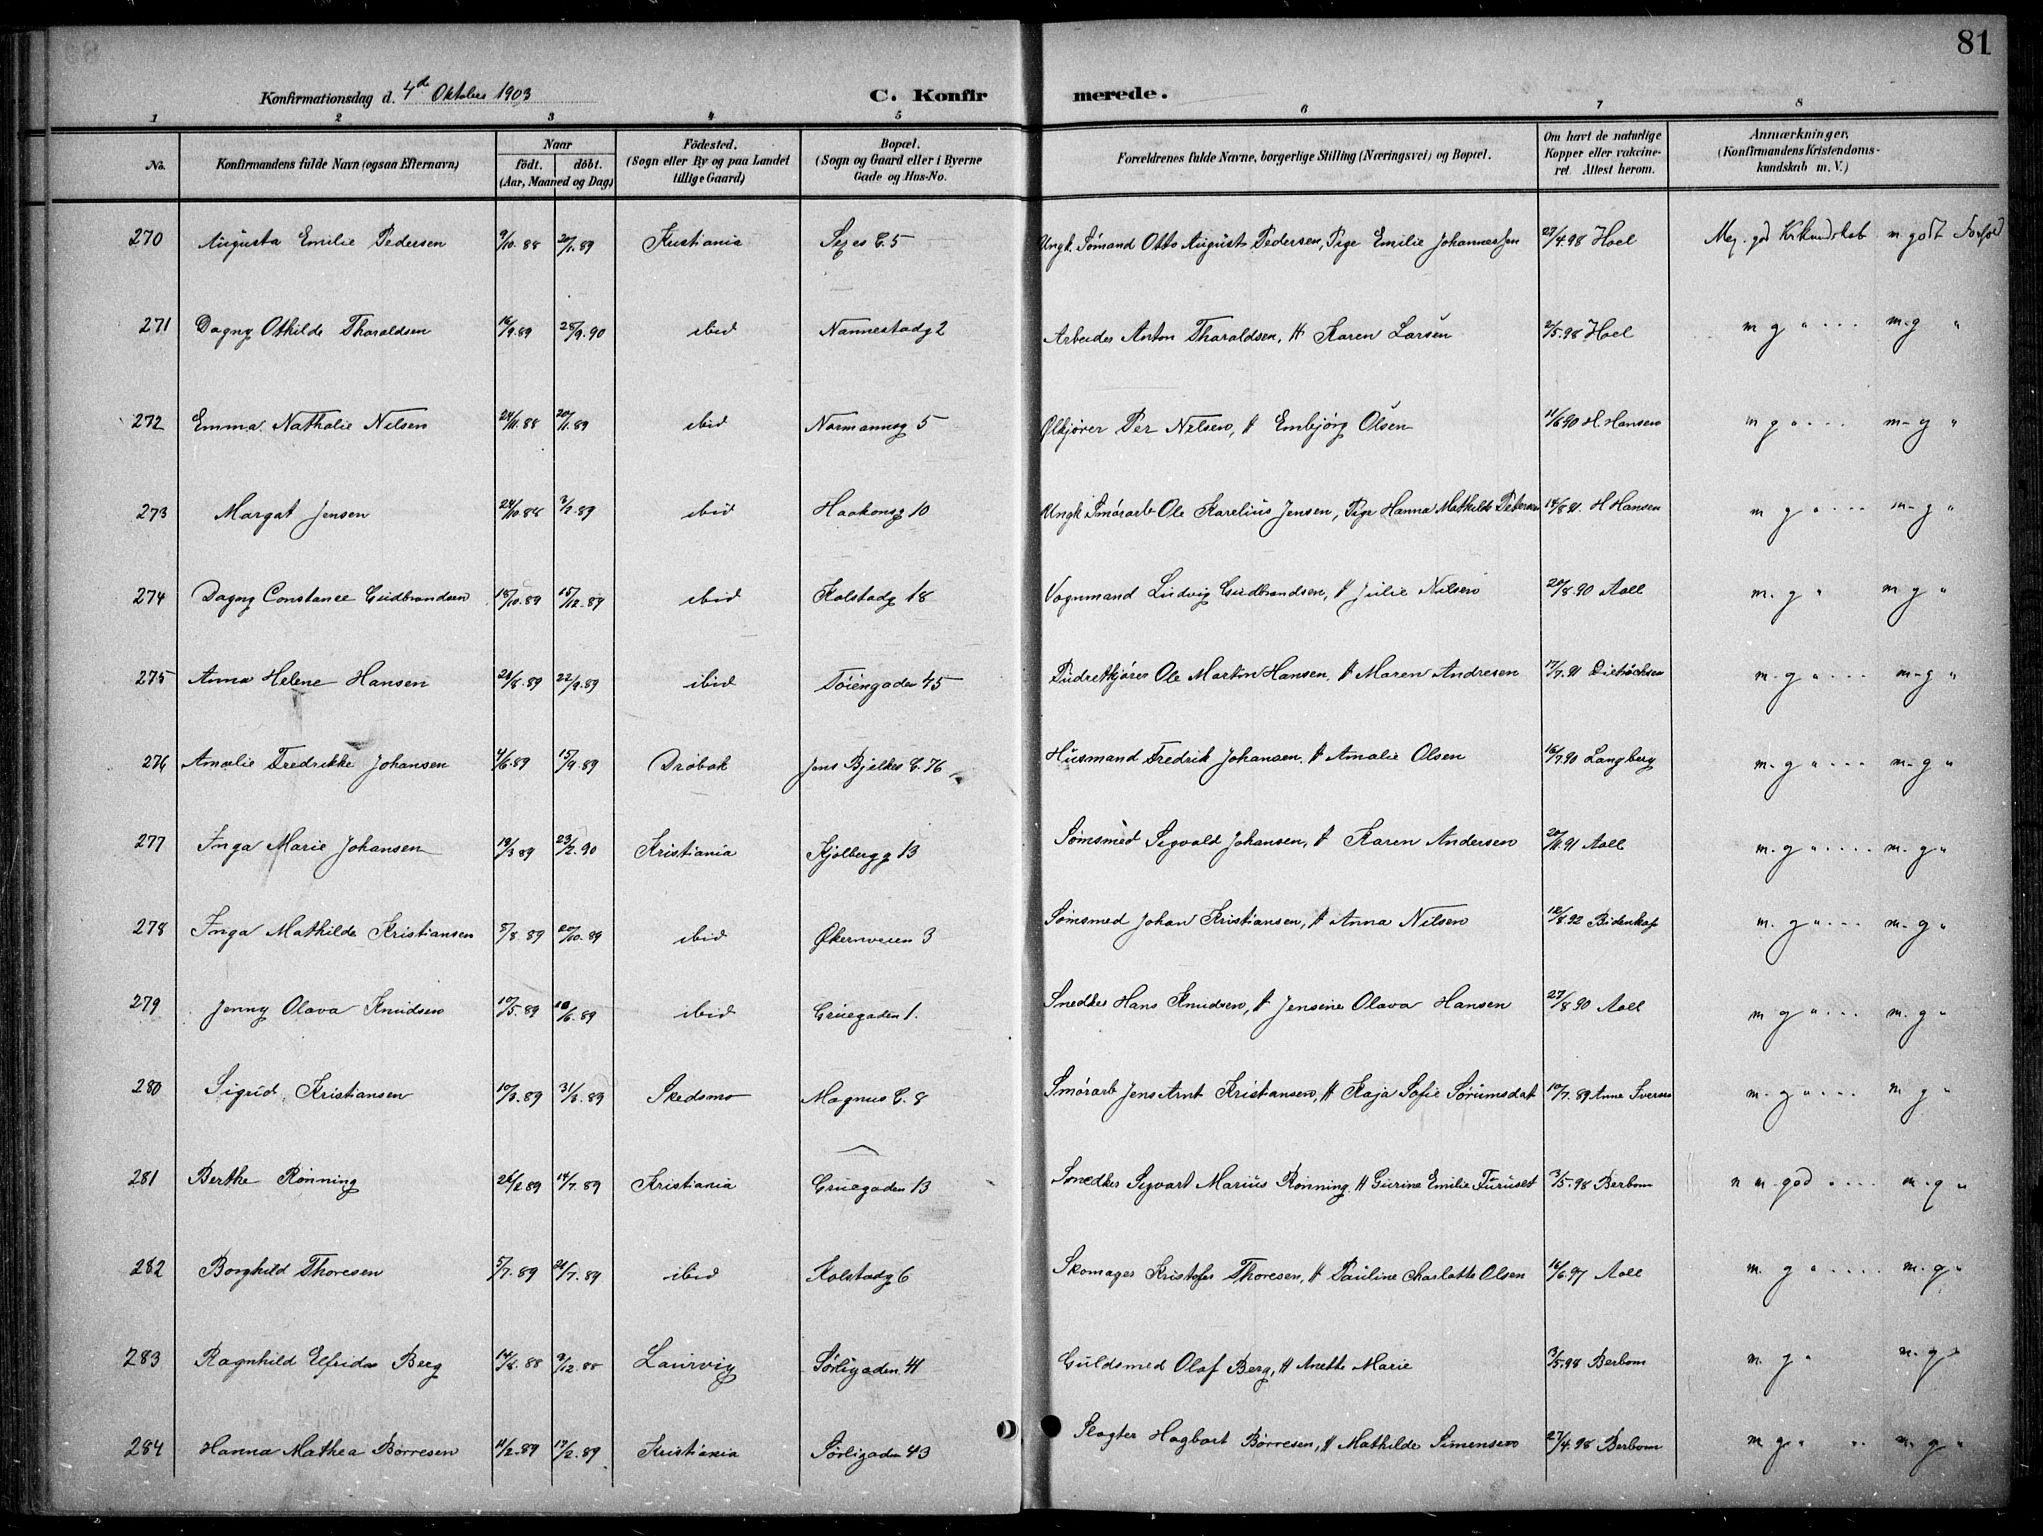 81
Konfirmationsdag d. 4de Oktober 1903 C. Konfirmerede.
1 2 3 4 5 6 7 8
No. Konfirmandens fulde Navn (ogsaa Efternavn) Naar födt. döbt. (Aar, Maaned og Dag) Födested. (Sogn eller By og paa Landet tillige Gaard) Bopæl. (Sogn og Gaard eller i Byerne Gade og Hus-No. Forældrenes fulde Navne, borgerlige Stilling (Næringsvei) og Bopæl. Om havt de naturlige Kopper eller vakcineret. Attest herom. Anmærkninger. (Konfirmandens Kristendomskundskab m. V.)
270 Augusta Emilie Pedersen 9/10.88 20/1.89 Kristiania Sejes G. 5 Ungk. Sømand Otto August Pedersen, Pige Emilie Johannessen 29/4.98 Hoel Meg. god Krkundskab m. godt Forhold
271 Dagny Othilde Tharaldsen 16/9.89 28/9.90 ibid Nannestadg 2 Arbeider Anton Tharaldsen, H Karen Larsen 2/5.98 Hoel m g " . . . m-g "
272 Emma Nathalie Nilsen 24/11.88 20/1.89 ibid Normannsg 5 Ølkjører Per Nilsen, H Embjörg Olsen 11/6 90 H. Hansen m g " . . . m-g "
273 Margat Jensen 24/10.88 3/2.89 ibid Haakonsg 10 Ungk Smørarb Ole Karelius Jensen, Pige Hanna Mathilde Petersen 14/8 91. H Hansen m g " . . . m-g "
274 Dagny Constance Gudbrandsen 18/10.89 15/12.89 ibid Kolstadg 18 Vognmand Ludvig Gudbrandsen, H Julie Nilsen 20/8.90 Aall m. g " m g "
275 Anna Helene Hansen 28/8.89 22/9.89 ibid Töiengaden 45 Pudretkjører Ole Martin Hansen, H Maren Andresen 17/7.91 Dietrichsen m-g " . . . m-g "
276 Amalie Fredrikke Johansen 4/6.89 15/9.89 Dröbak Jens Bjelkes G. 76 Husmand Fredrik Johansen, H Amalie Olsen 16/7.90 Langberg m-g " . . . m-g "
277 Inga Marie Johansen 19/3 89 23/2.90 Kristiania Kjölbergg 13 Sömsmed Sigvald Johansen, H Karen Andersen 20/11.91 Aall m. g " . . . . m. g "
278 Inga Mathilde Kristiansen 8/8.89 20/10.89 ibid Økernveien 3 Sömsmed Johan Kristiansen, H Anna Nilsen 12/8.92 Bidenkap m. g " . . . m-g "
279 Jenny Olava Knudsen 10/5.89 10/6.89 ibid Gruegaden 1. Snedker Hans Knudsen, H Jensine Olava Hansen 27/8 90 Aall m g " . . . m. g "
280 Sigrid Kristiansen 10/3.89 31/3.89 Skedsmo Magnus G. 8 Smörarb Jens Arnt Kristiansen, H Kaja Sofie Sörumsdat 10/7.89 Anne Iversen m-g " . . . m g "
281 Berthe Rönning 26/2 89 14/7.89 Kristiania Gruegaden 13 Snedker Sigvart Marius Rönning, H Gurine Emilie Furuset 3/5.98 Berbom m. god " . . . m. g "
282 Borghild Thoresen 5/7.89 28/7.89 ibid Kolstadg 6 Skomager Kristofer Thoresen, H Pauline Charlotte Olsen 16/6.97 Aall m. g " . . . . m. g "
283 Ragnhild Elfrida Berg 14/8.88 9/12.88 Laurvig Sörligaden 41 Guldsmed Olaf Berg, H Anette Marie 3/5.98 Berbom m. g " m. g "
284 Hanna Mathea Börresen 11/2.89 17/2.89 Kristiania Sörligaden 43 Slagter Hagbart Börresen, H Mathilde Simensen 27/4.98 Berbom m g " " m g "